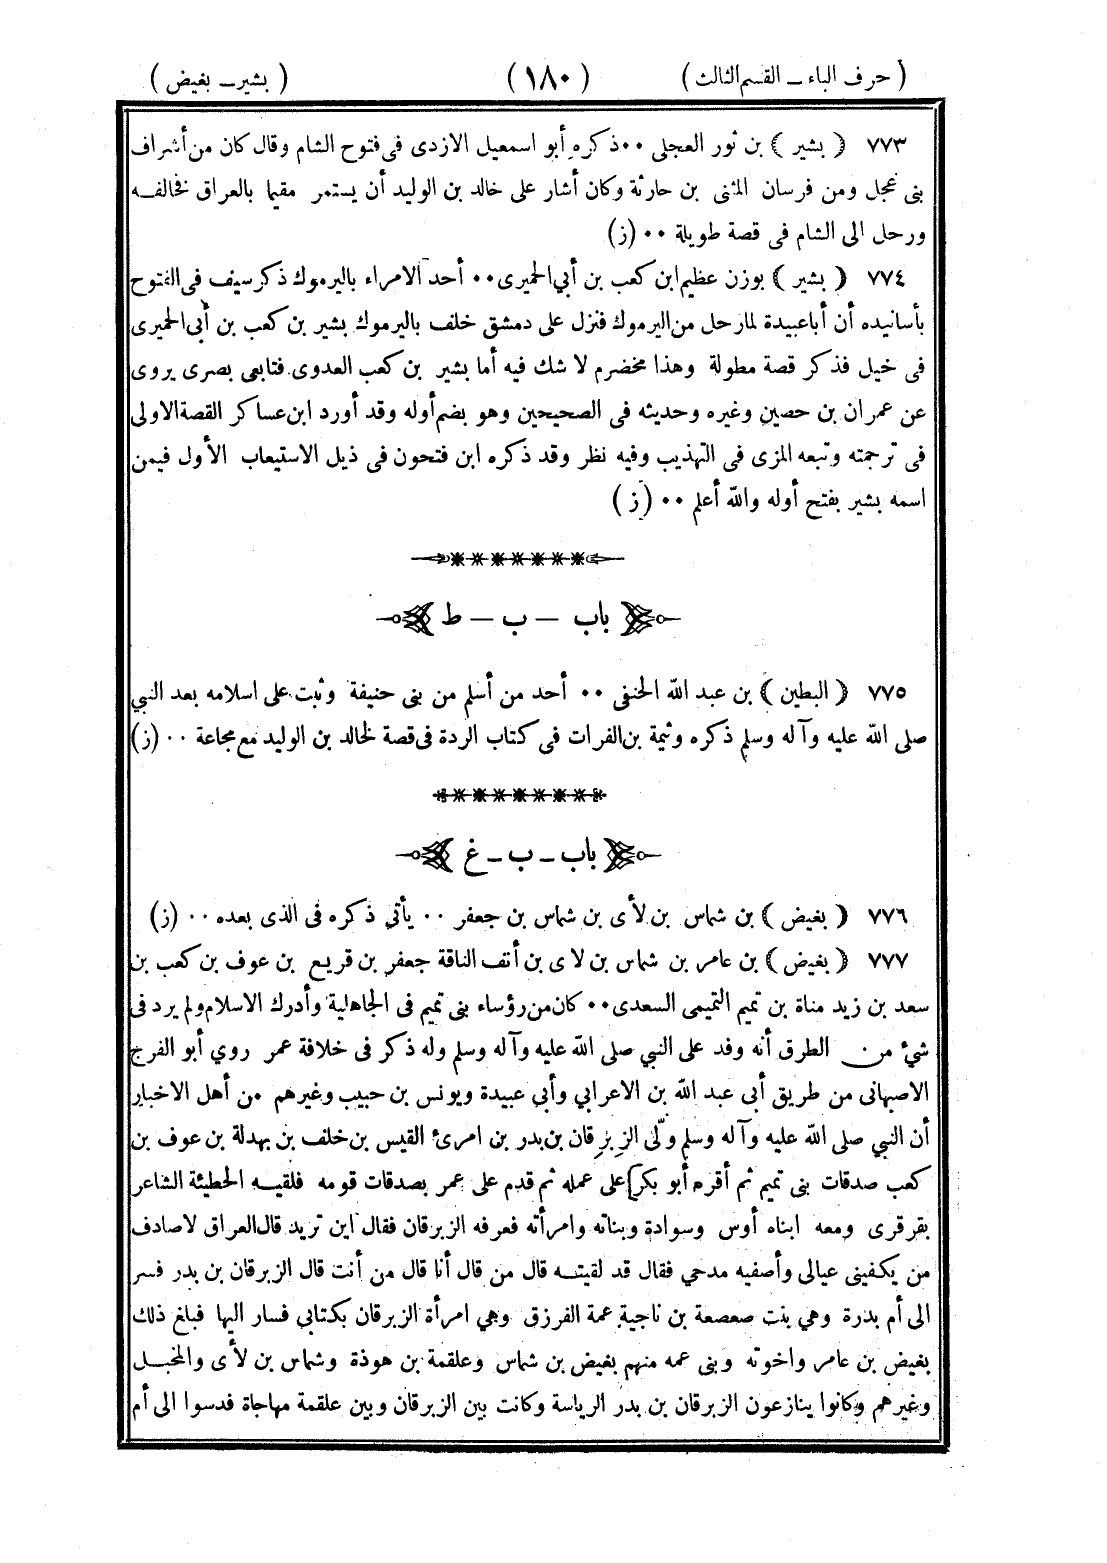 ( حرف الباء ــ القسم الثالث ) ( ١٨٠ ) ( بشير ــ بغيض )
٧٧٣ ( بشير ) بن ثور العجلى ٠٠ ذكره أبو اسمعيل الازدى فى فتوح الشام وقال كان من أشراف
بنى عجل ومن فرسان المثنى بن حارثة وكان أشار على خالد بن الوليد أن يستمر مقيما بالعراق فخالفه
ورحل الى الشام فى قصة طويلة ٠٠ (ز)
٧٧٤ ( بشير ) بوزن عظيم ابن كعب بن أبي الحميرى ٠٠ أحد الامراء باليرموك ذكر سيف فى الفتوح
بأسانيده أن أبا عبيدة لما رحل من اليرموك فنزل على دمشق خلف باليرموك بشير بن كعب بن أبى الحميرى
فى خيل فذكر قصة مطولة وهذا مخضرم لا شك فيه أما بشير بن كعب العدوى فتابعى بصرى يروى
عن عمران بن حصين وغيره وحديثه فى الصحيحين وهو بضم أوله وقد أورد ابن عساكر القصة الاولى
فى ترجمته وتبعه المزى فى التهذيب وفيه نظر وقد ذكره ابن فتحون فى ذيل الاستيعاب الأول فيمن
اسمه بشير بفتح أوله والله أعلم ٠٠ (ز)
باب — ب — ط
٧٧٥ ( البطين ) بن عبد الله الحنفى ٠٠ أحد من أسلم من بنى حنيفة وثبت على اسلامه بعد النبي
صلى الله عليه وآله وسلم ذكره وثيمة بن الفرات فى كتاب الردة فى قصة لخالد بن الوليد مع مجاعة ٠٠ (ز)
باب ــ ب ــ غ
٧٧٦ ( بغيض ) بن شماس بن لأى بن شماس بن جعفر ٠٠ يأتي ذكره فى الذى بعده ٠٠ (ز)
٧٧٧ ( بغيض ) بن عامر بن شماس بن لاى بن أنف الناقة جعفر بن قريع بن عوف بن كعب بن
سعد بن زيد مناة بن تميم التميمى السعدى ٠٠ كان من رؤساء بنى تميم فى الجاهلية وأدرك الاسلام ولم يرد فى
شئ من الطرق أنه وفد على النبي صلى الله عليه وآله وسلم وله ذكر فى خلافة عمر روي أبو الفرج
الاصبهانى من طريق أبى عبد الله بن الاعرابي وأبي عبيدة ويونس بن حبيب وغيرهم من أهل الاخبار
أن النبي صلى الله عليه وآله وسلم ولّى الزبرقان بن بدر بن امرئ القيس بن خلف بن بهدلة بن عوف بن
كعب صدقات بنى تميم ثم أقره أبو بكر على عمله ثم قدم على عمر بصدقات قومه فلقيه الحطيئة الشاعر
بقرقرى ومعه ابناه أوس وسوادة وبناته وامرأته فعرفه الزبرقان فقال اين تريد قال العراق لاصادف
من يكفينى عيالى وأصفيه مدحي فقال قد لقيته قال من قال أنا قال من أنت قال الزبرقان بن بدر فسر
الى أم بدرة وهي بنت صعصعة بن ناجية عمة الفرزق وهي امرأة الزبرقان بكتابي فسار اليها فبلغ ذلك
بغيض بن عامر واخوته وبنى عمه منهم بغيض بن شماس وعلقمة بن هوذة وشماس بن لأى والمخبل
وغيرهم وكانوا ينازعون الزبرقان بن بدر الرياسة وكانت بين الزبرقان وبين علقمة مهاجاة فدسوا الى أم